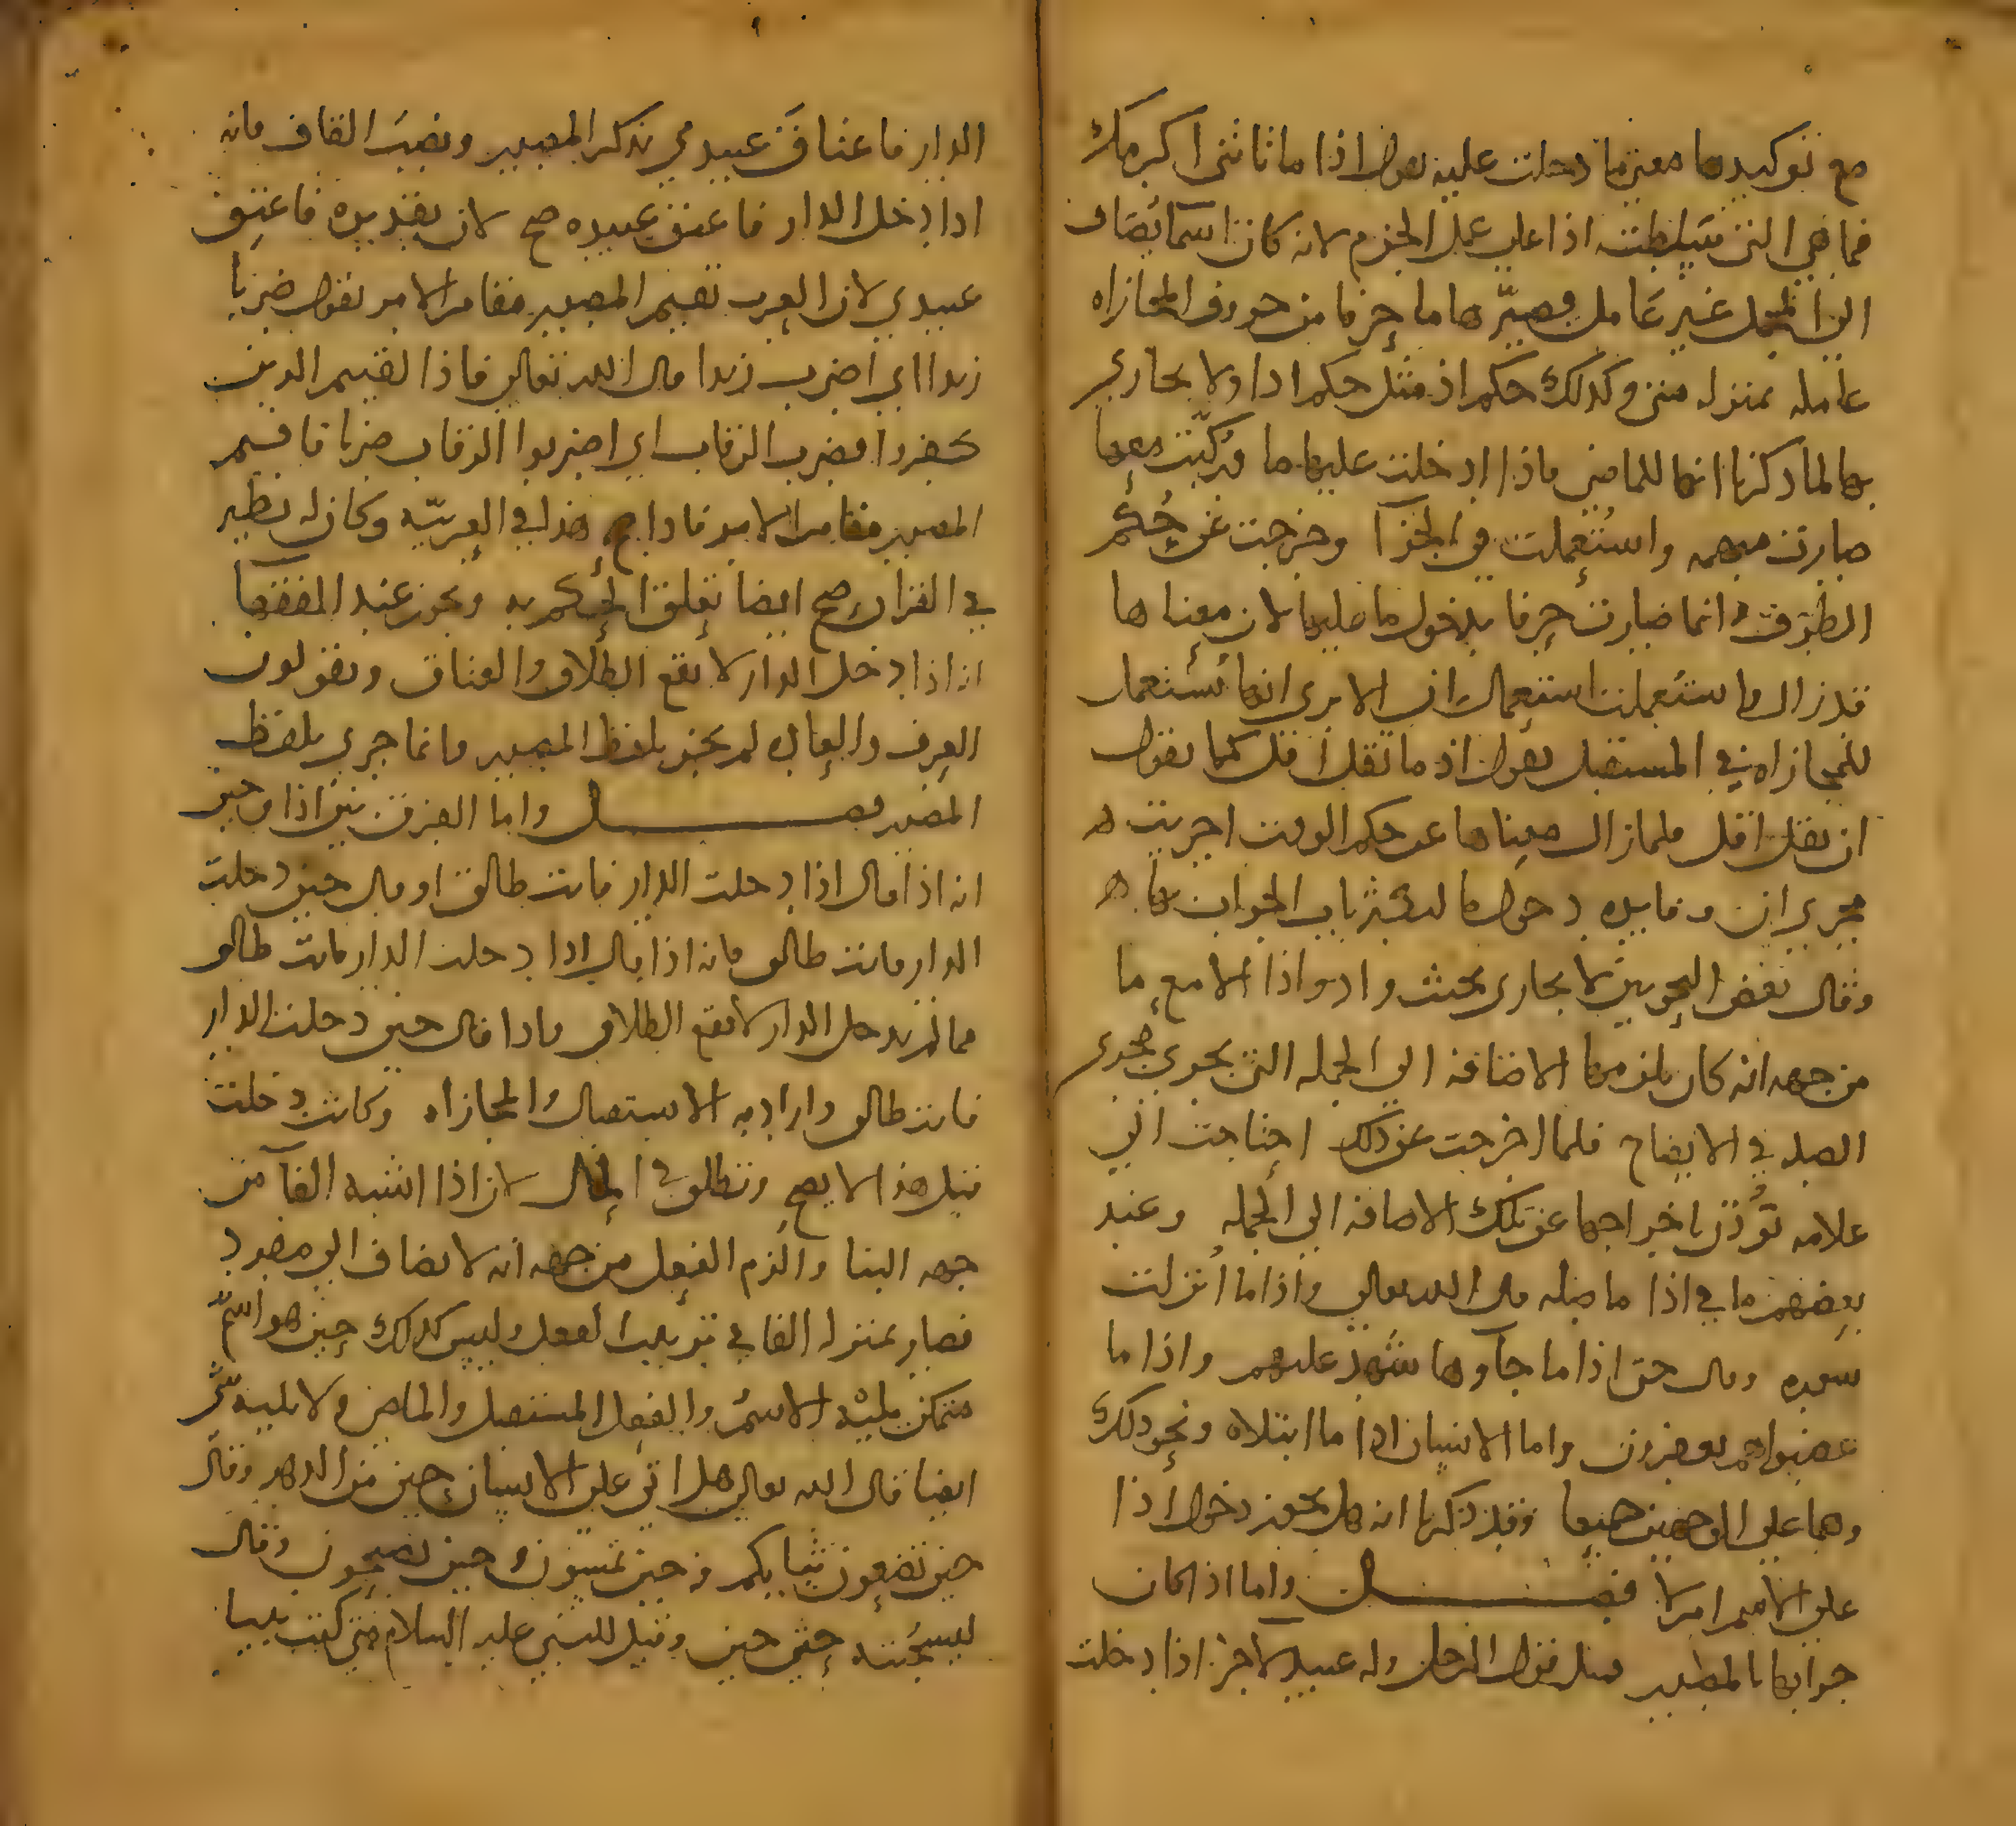 مع توكيدها معنى ما دخلت عليه تقول اذا ما تاتنى اكرمك
فما هي التى سلطت اذا على عمل الجزم لانه كان اسما يضاف
الى الجمل غير عامل فصيّرها ما حرفا من حروف المجازاه
عامله بمنزله متى وكذلك حكم اذ مثل حكم اذا ولا يجازى
بها لما ذكرنا انها للماضى فاذا ادخلت عليها ما فركّبت معها
صارت مبهمه واستُعملت فى الجزآ وخرجت عن حُكم
الظرف وانما صارت حرفا بدخول ما عليها لان معناها
قد زال واستعملت استعمال ان الا ترى انها تُستعمل
للمجازاه في المستقبل تقول اذ ما تقل اقل كما تقول
ان تقل اقل فلما زال معناها عن حكم الوقت اجريت
مجرى ان وفايده دخول ما لتكثر باب الجواب بها
وقال بعض النحويين لا يجازى بحيث واذ واذا الا مع ما
من جهه انه كان يلزمها الاضافه الى الجمله التى تجرى مجرى
الصله في الايضاح فلما اخرجت عن ذلك احتاجت الى
علامه تؤذن باخراجها عن تلك الاضافه الى الجمله وعند
بعضهم ما في اذا ما صله قال الله تعالى واذا ما أُنزلت
سوره وقال حتى اذا ما جآوها شهد عليهم واذا ما
غضبوا هم يغفرون واما الانسان اذا ما ابتلاه ونحو ذلك
وهما على الوجهين جميعا وقد ذكرنا انه هل يجوز دخول اذا
على الاسم ام لا فصل واما اذا كان
جوابها بالمصدر مثل قول الرجل وله عبيد لاخر اذا دخلت
الدار فاعتاقَ عبيدى بذكر المصدر ونصب القاف فانه
اذا دخل الدار فاعتق عبيده صح لان تقديره فاعتق
عبيدى لان العرب تقيم المصدر مقام الامر تقول ضربا
زيدا اى اضرب زيدا قال الله تعالى فاذا لقيتم الذين
كفروا فضرب الرقاب اى اضربوا الرقاب ضربا فاقيم
المصدر مقام الامر فاذا صح هذا في العربيّه وكان له نظير
في القران صح ايضا تعلق الحكم به ويجوز عند الفقهآ
اذا دخل الدار لا يقع الطلاق والعتاق ويقولون
العرف والعاده لم تجز بلفظ المصدر وانما جرى بلفظ
المصدر فصل واما الفرق بين اذا وحين
انه اذا قال اذا دخلت الدار فانت طالق او قال حين دخلت
الدار فانت طالق فانه اذا قال اذا دخلت الدار فانت طالق
فما لم تدخل الدار لا يقع الطلاق واذا قال حين دخلت الدار
فانت طالق واراد به الاستقبال والمجازاه وكانت دخلت
قبل هذا لا يصح وتطلق في الحال لان اذا اشبه الفآ من
جهه البنا والزم الفعل من جهه انه لا يضاف الى مفرد
فصار بمنزله الفا في ترتيب الفعل وليس كذلك حين هو اسمٌ
متمكن يليه الاسم والفعل المستقبل والماضى ولا يليه
ايضا قال الله تعالى هل اتى على الانسان حين من الدهر وقال
حين تضعون ثيابكم وحين تمسون وحين تصبحون وقال
ليسجُننه حتى حين وقيل للنبى عليه السلام متى كنت نبيا